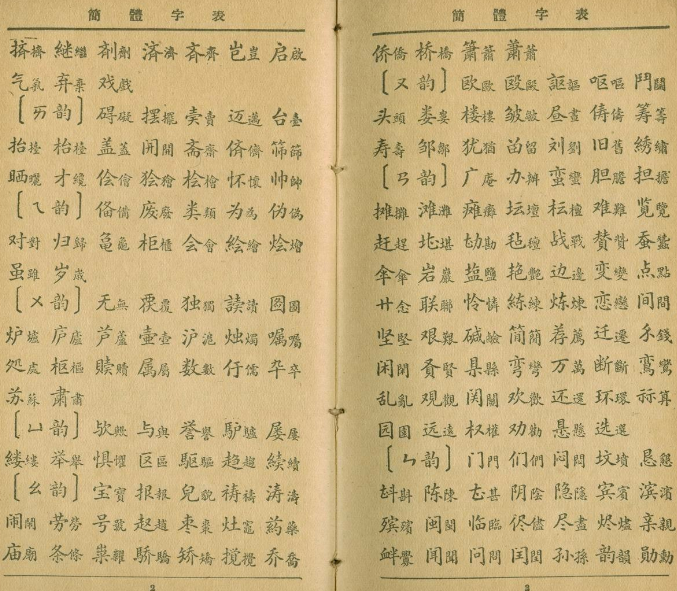 簡體字表
挤擠 継繼 剤劑 済濟 斉齊 岂豈 启啟
气氣 弃棄 戏戲
〔ㄞ韵〕 碍礙 摆擺 卖賣 迈邁 台臺
抬擡 枱檯 盖蓋 開開 斋齋 侪儕 筛篩
晒曬 才纔 侩儈 狯獪 桧檜 怀懷 帅帥
〔ㄟ韵〕 俻備 废廢 类類 为為 伪偽
对對 归歸 亀龜 柜櫃 会會 絵繪 烩燴
虽雖 岁歲
〔ㄨ韵〕 无無 覄覆 独獨 読讀 图圖
炉爐 庐廬 芦蘆 壷壺 沪滬 烛燭 嘱囑
処處 枢樞 赎贖 属屬 数數 㐵儒 卆卒
苏蘇 肃肅
〔ㄩ韵〕 欤歟 与與 誉譽 驴驢 屡屢
缕縷 举舉 惧懼 区區 駆驅 趋趨 続續
〔ㄠ韵〕 宝寶 报報 皃貌 祷禱 涛濤
闹鬧 劳勞 号號 赵趙 枣棗 灶竈 药藥
庙廟 条條 粜糶 骄驕 矫矯 搅攪 乔喬
2
簡體字表
侨僑 桥橋 箫簫 萧蕭
〔ㄡ韵〕 欧歐 殴毆 讴謳 呕嘔 鬥鬭
头頭 娄婁 楼樓 皱皺 昼晝 俦儔 筹籌
寿壽 邹鄒 犹猶 畄留 刘劉 旧舊 綉繡
〔ㄢ韵〕 广庵 办辦 蛮蠻 胆膽 担擔
摊攤 滩灘 瘫癱 坛壇 枟檀 难難 览覽
赶趕 勘 毡氈 战戰 赞贊 蚕蠶
伞傘 岩巖 盐鹽 艳艷 边邊 变變 点點
廿念 联聯 怜憐 練練 炼煉 恋戀 间間
坚堅 艰艱 碱鹼 简簡 荐薦 迁遷 錢
闲閑 贤賢 県縣 弯彎 万萬 断斷 鸾鸞
乱亂 观觀 関關 欢歡 还還 环環 祘算
园園 远遠 权權 劝勸 悬懸 选選
〔ㄣ韵〕 门門 们們 闷悶 坟墳 恳懇
斟 陈陳 甚 阴陰 隐隱 宾賓 滨濱
殡殯 闽閩 临臨 侭儘 尽盡 烬燼 亲親
衅釁 闻聞 问問 闰閏 孙孫 韵韻 勋勳
3